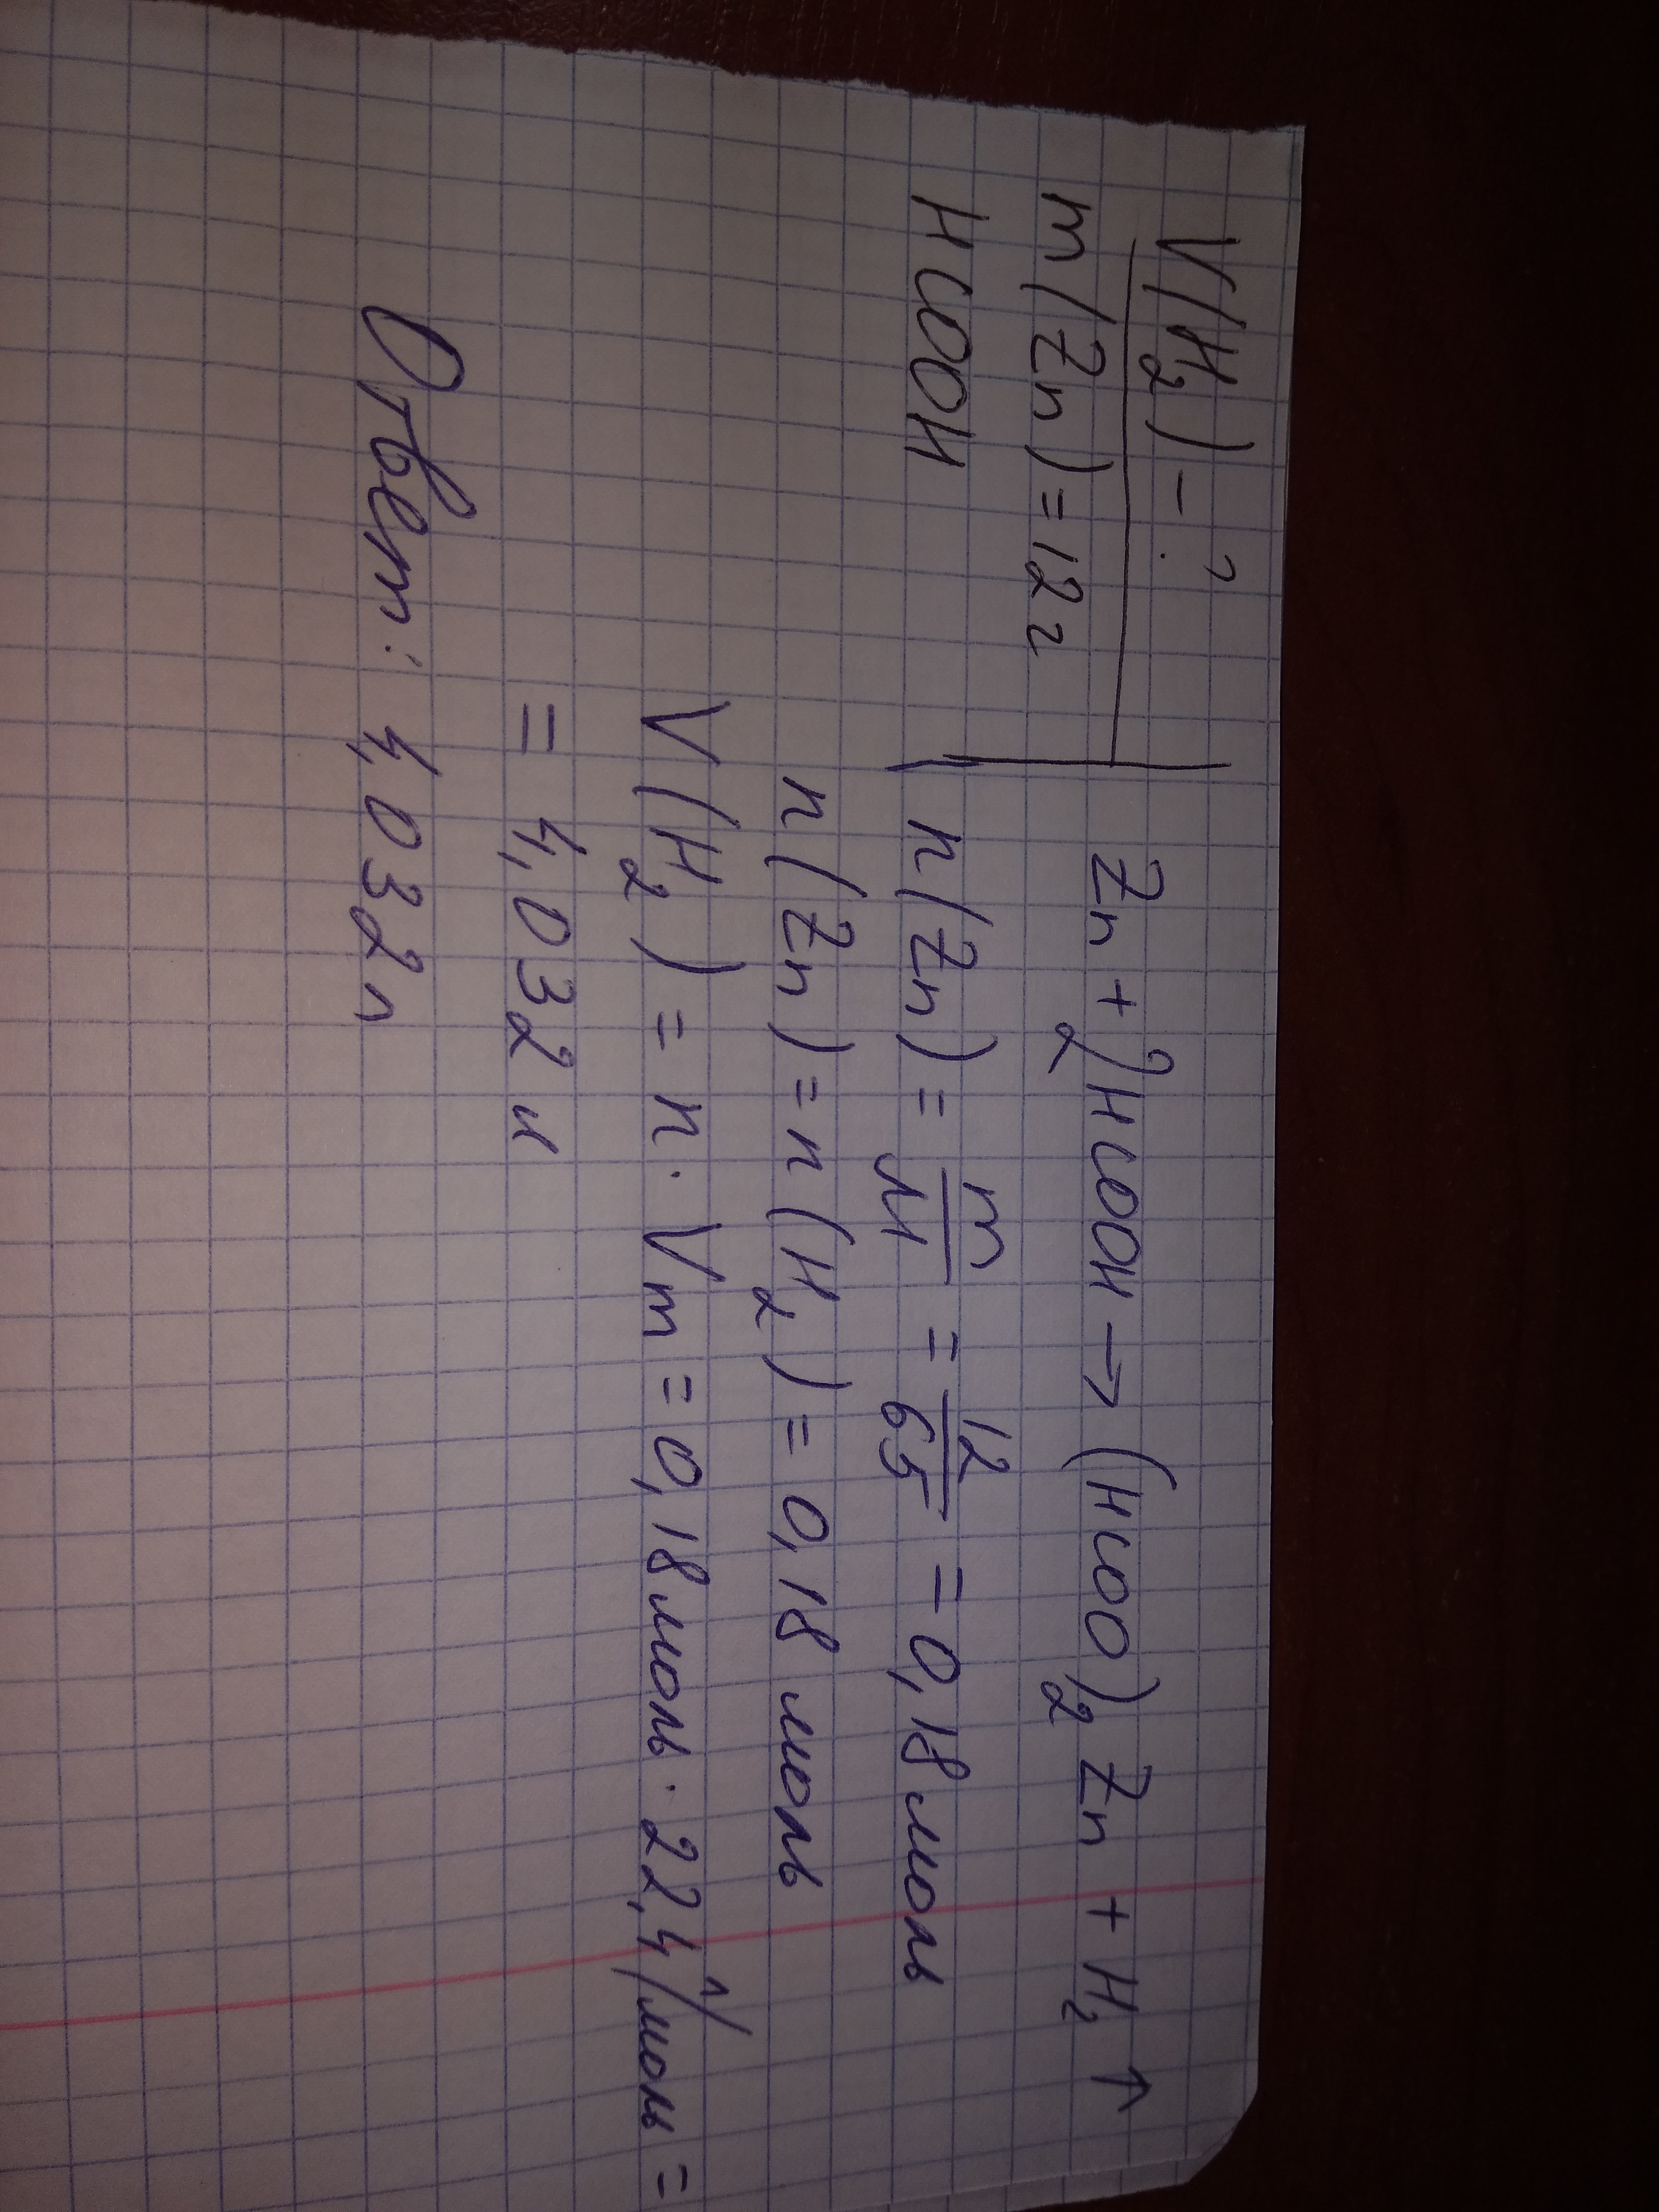 V(H₂) - ?
m(Zn) = 12 г
HCOOH
Zn + 2HCOOH → (HCOO)₂Zn + H₂ ↑
n(Zn) = m/M = 12/65 = 0,18 моль
n(Zn) = n(H₂) = 0,18 моль
V(H₂) = n · Vm = 0,18 моль · 22,4 л/моль =
= 4,032 л
Ответ: 4,032 л